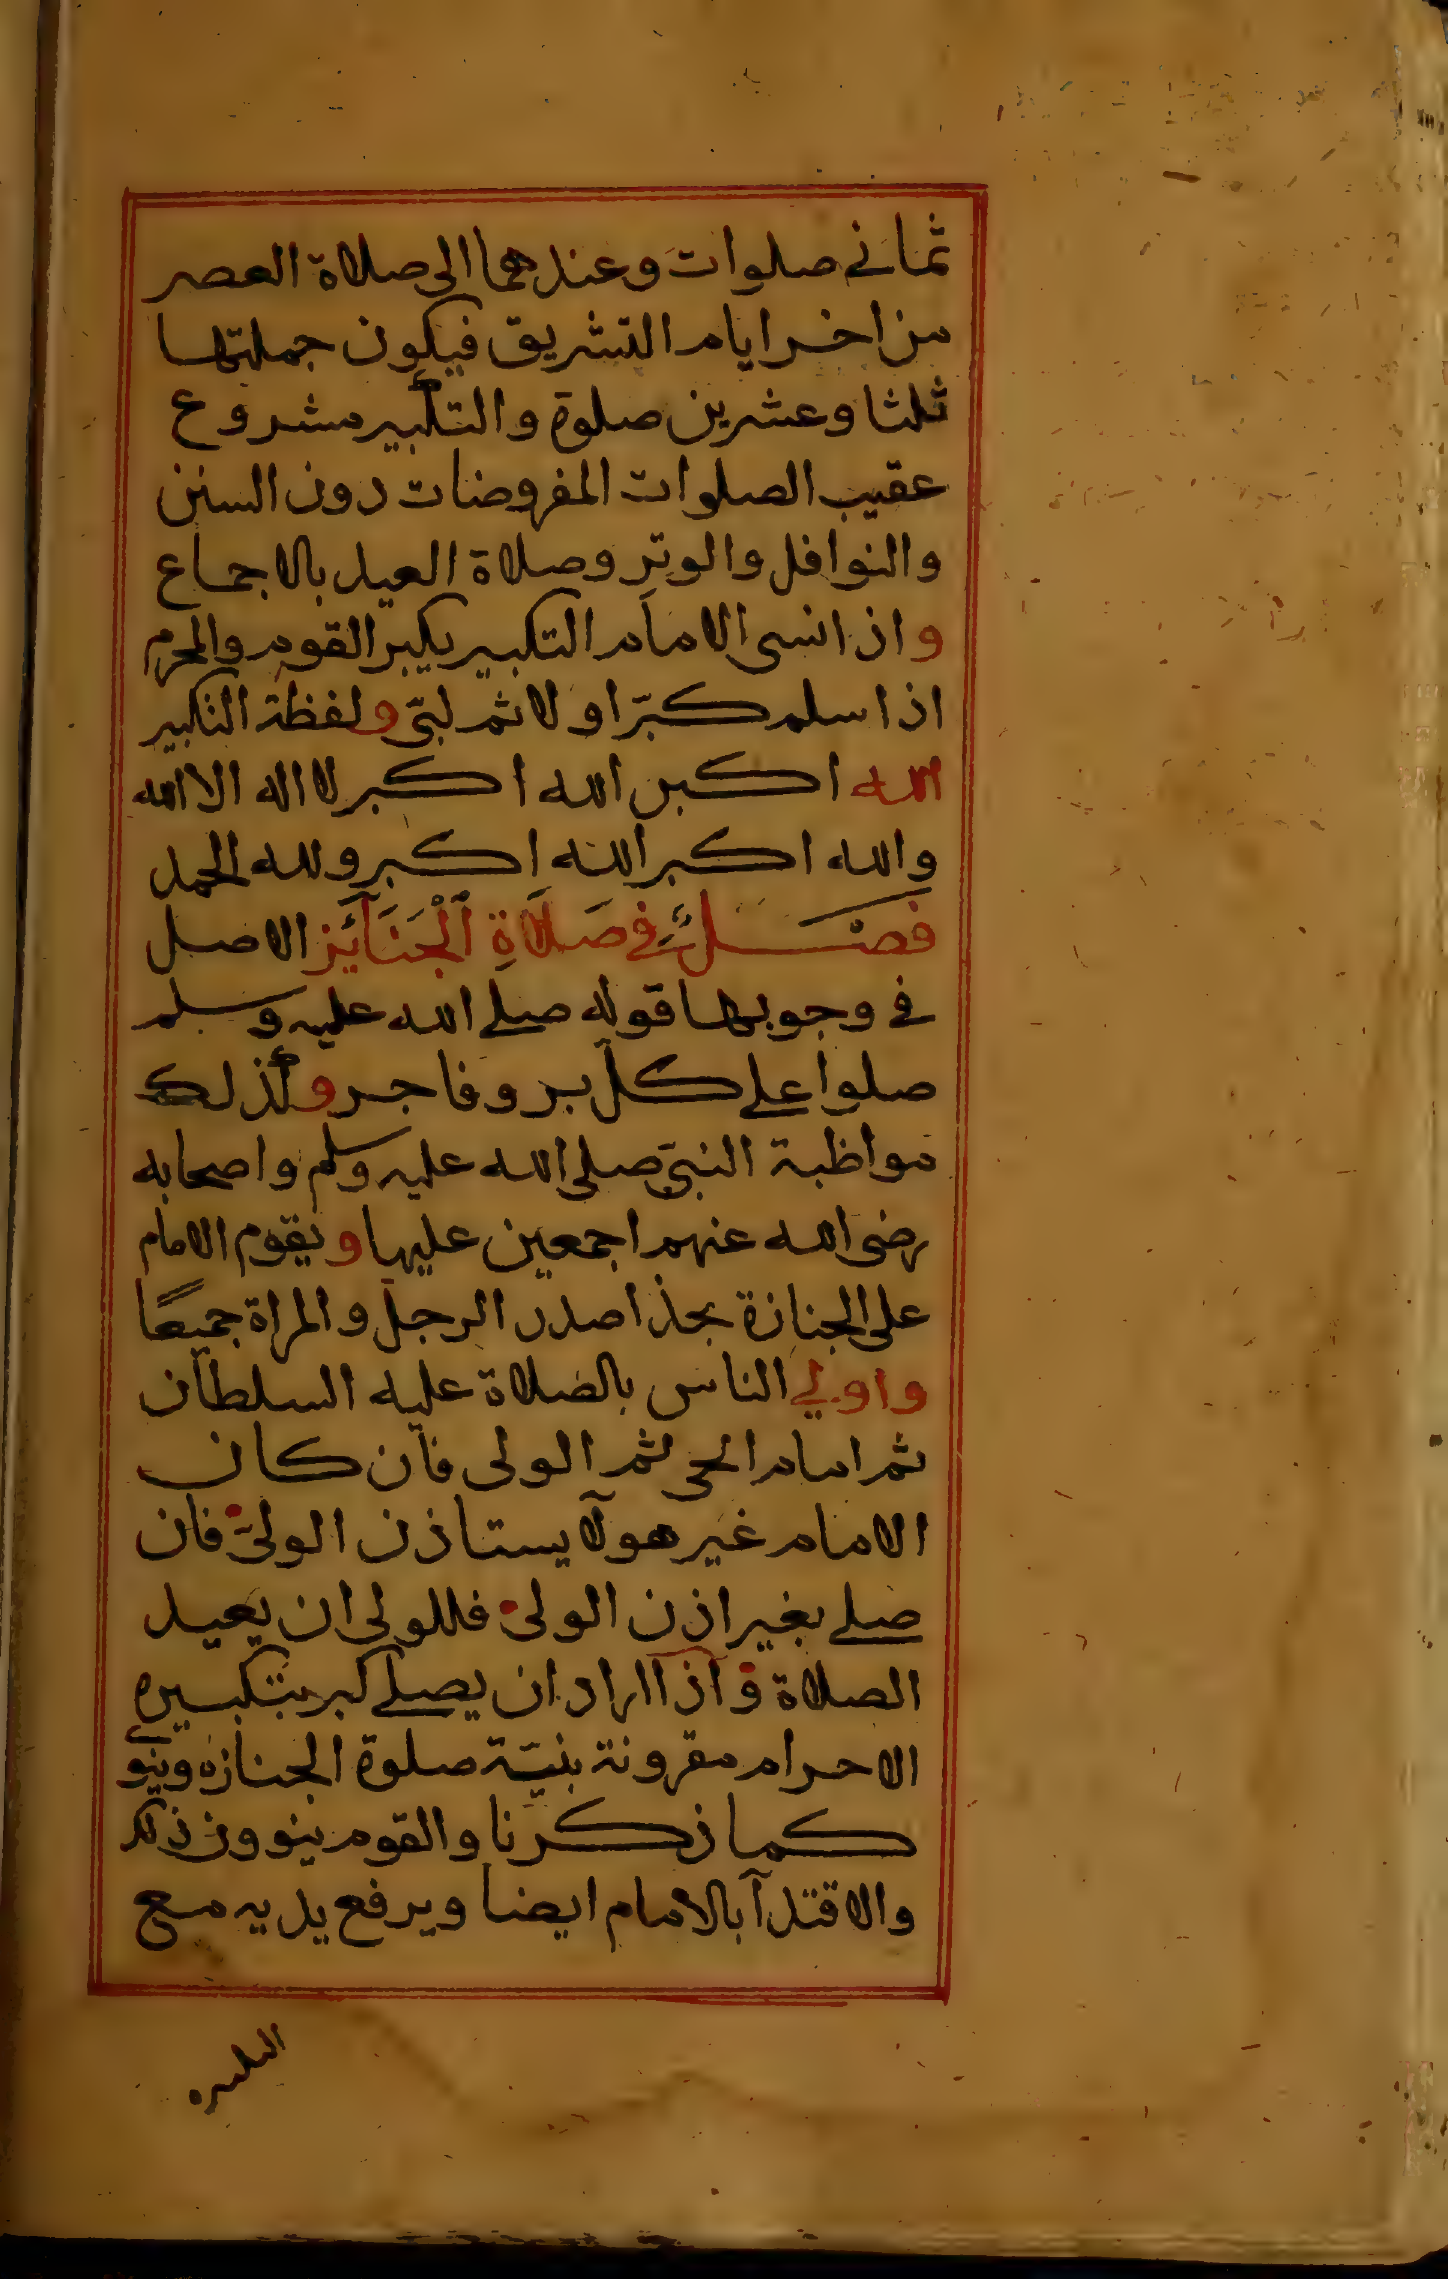 ثمانى صلوات وعندهما الى صلاة العصر
من اخر ايام التشريق فيكون جملتها
ثلثا وعشرين صلوة والتكبير مشروع
عقيب الصلوات المفروضات دون السنن
والنوافل والوتر وصلاة العيد بالاجماع
واذا نسى الامام التكبير يكبر القوم والمحرم
اذا سلم كبّر اولا ثم لبّى ولفظة التكبير
الله اكبر الله اكبر لا اله الا الله
والله اكبر الله اكبر ولله الحمد
فصل في صَلَاةِ الْجَنَائِز الاصل
في وجوبها قوله صلى الله عليه وسلم
صلوا على كل بر وفاجر وكذلك
مواظبة النبىّ صلى الله عليه وسلم واصحابه
رضى الله عنهم اجمعين عليها ويقوم الامام
على الجنازة بحذا صدر الرجل والمراة جميعًا
واولي الناس بالصلاة عليه السلطان
ثم امام الحى ثم الولى فان كان
الامام غير هولآ يستاذن الولىّ فان
صلى بغير اذن الولى فللولى ان يعيد
الصلاة واذا اراد ان يصلى كبر بتكبيرة
الاحرام مقرونة بنيّة صلوة الجنازة وينوى
كما ذكرنا والقوم ينوون ذلك
والاقتدآ بالامام ايضا ويرفع يديه مع